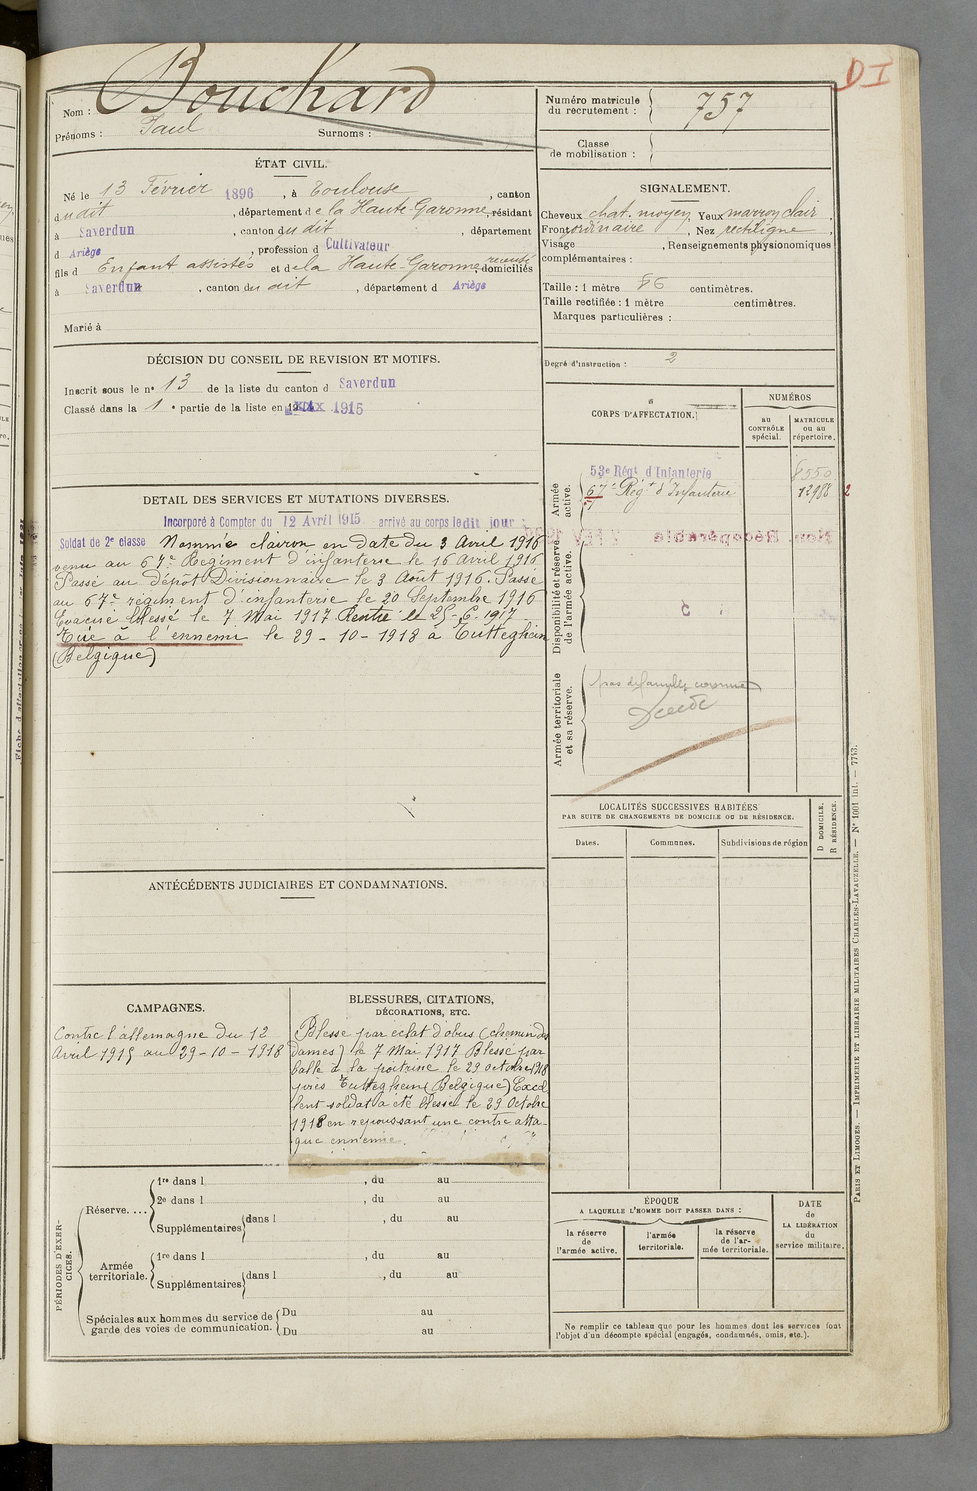 D I
Nom : Bouchard
Prénoms : Paul Surnoms :
ÉTAT CIVIL.
Né le 13 Février 1896, à Toulouse, canton
dudit, département de la Haute-Garonne, résidant
à Saverdun, canton dudit, département
d Ariège, profession d Cultivateur
fils d Enfant assistés et de la Haute-Garonne, recensé domiciliés
à Saverdun, canton dudit, département d Ariège
Marié à
DÉCISION DU CONSEIL DE REVISION ET MOTIFS.
Inscrit sous le n° 13 de la liste du canton d Saverdun
Classé dans la 1e partie de la liste en 1915
DETAIL DES SERVICES ET MUTATIONS DIVERSES.
Incorporé à Compter du 12 Avril 1915 arrivé au corps ledit jour
Soldat de 2e classe Nommé clairon en date du 3 Avril 1916
venu au 67e Regiment d'infanterie le 16 avril 1916
Passé au dépôt Divisionnaire le 3 Août 1916. Passé
au 67e régiment d'infanterie le 20 Septembre 1916
Evacué blessé le 7 Mai 1917 Rentré le 25-6-1917
Tué à l'ennemi le 29-10-1918 à Tutteghem
(Belgique)
ANTÉCÉDENTS JUDICIAIRES ET CONDAMNATIONS.
CAMPAGNES.
Contre l'allemagne du 12
Avril 1915 au 29-10-1918
BLESSURES, CITATIONS,
DÉCORATIONS, ETC.
Blessé par eclat d'obus (chemin des
Dames) le 7 Mai 1917 Blessé par
balle à la poitrine le 29 octobre 1918
près Tutteghem (Belgique) Excel
lent soldat a été blessé le 29 Octobre
1918 en repoussant une contre atta-
que ennemie.
PÉRIODES D'EXERCICES.
Réserve.... 1re dans l , du au
2e dans l , du au
Supplémentaires dans l , du au
Armée territoriale. 1re dans l , du au
Supplémentaires dans l , du au
Spéciales aux hommes du service de garde des voies de communication. Du au
Du au
Numéro matricule du recrutement : 757
Classe de mobilisation :
SIGNALEMENT.
Cheveux chat. moyen, Yeux marron clair,
Front ordinaire, Nez rectiligne,
Visage , Renseignements physionomiques
complémentaires :
Taille : 1 mètre 86 centimètres.
Taille rectifiée : 1 mètre centimètres.
Marques particulières :
Degré d'instruction : 2
CORPS D'AFFECTATION.
NUMÉROS
au CONTRÔLE spécial.
MATRICULE ou au répertoire.
Armée active.
53e Régt d'Infanterie 8550
67e Régt d'Infanterie 12988 2
Disponibilité et réserve de l'armée active.
Non Récupérable
Armée territoriale et sa réserve.
pas de famille connue
Décédé
LOCALITÉS SUCCESSIVES HABITÉES
PAR SUITE DE CHANGEMENTS DE DOMICILE OU DE RÉSIDENCE.
Dates.
Communes.
Subdivisions de région
D DOMICILE.
R RÉSIDENCE.
ÉPOQUE
A LAQUELLE L'HOMME DOIT PASSER DANS :
la réserve de l'armée active.
l'armée territoriale.
la réserve de l'armée territoriale.
DATE de LA LIBÉRATION du service militaire.
Ne remplir ce tableau que pour les hommes dont les services font
l'objet d'un décompte spécial (engagés, condamnés, omis, etc.).
PARIS ET LIMOGES. — IMPRIMERIE ET LIBRAIRIE MILITAIRES CHARLES-LAVAUZELLE. — N° 1001 int. — 7713.